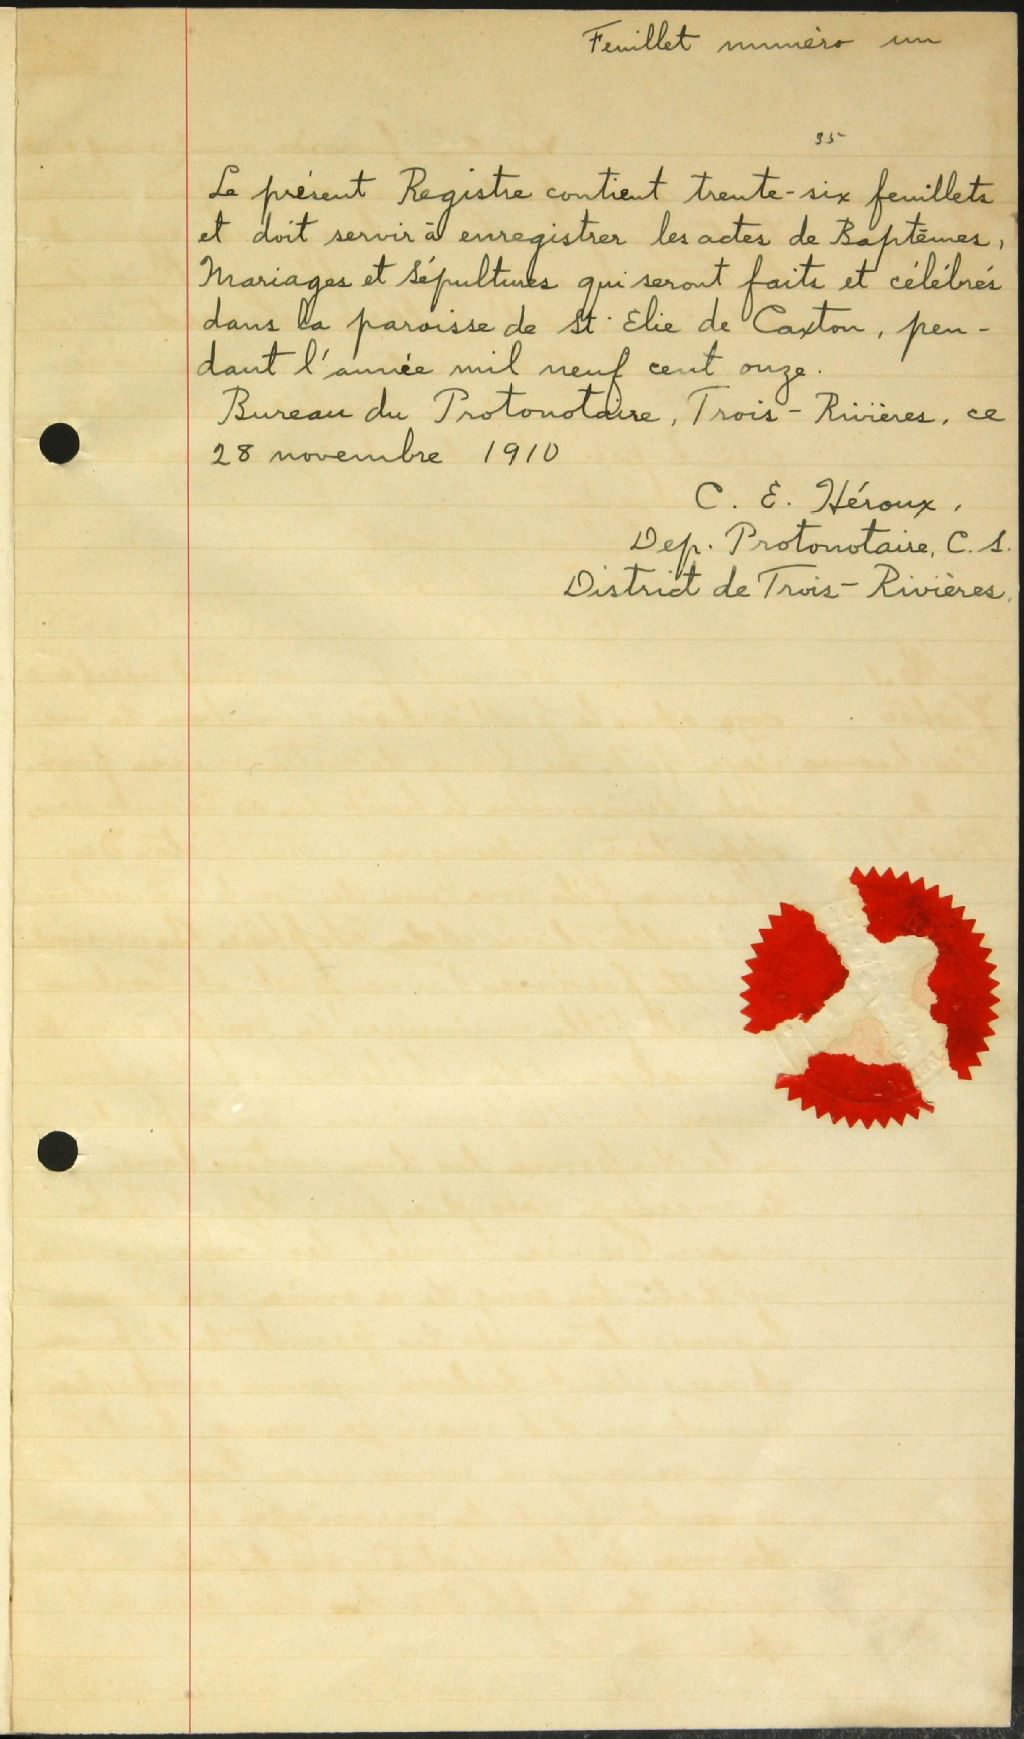 Feuillet numéro un
35
Le présent Registre contient trente-six feuillets
et doit servir à enregistrer les actes de Baptêmes,
Mariages et Sépultures qui seront faits et célébrés
dans la paroisse de St. Elie de Caxton, pen-
dant l'année mil neuf cent onze.
Bureau du Protonotaire, Trois-Rivières, ce
28 novembre 1910
C. E. Héroux,
Dep. Protonotaire, C. S.
District de Trois-Rivières.